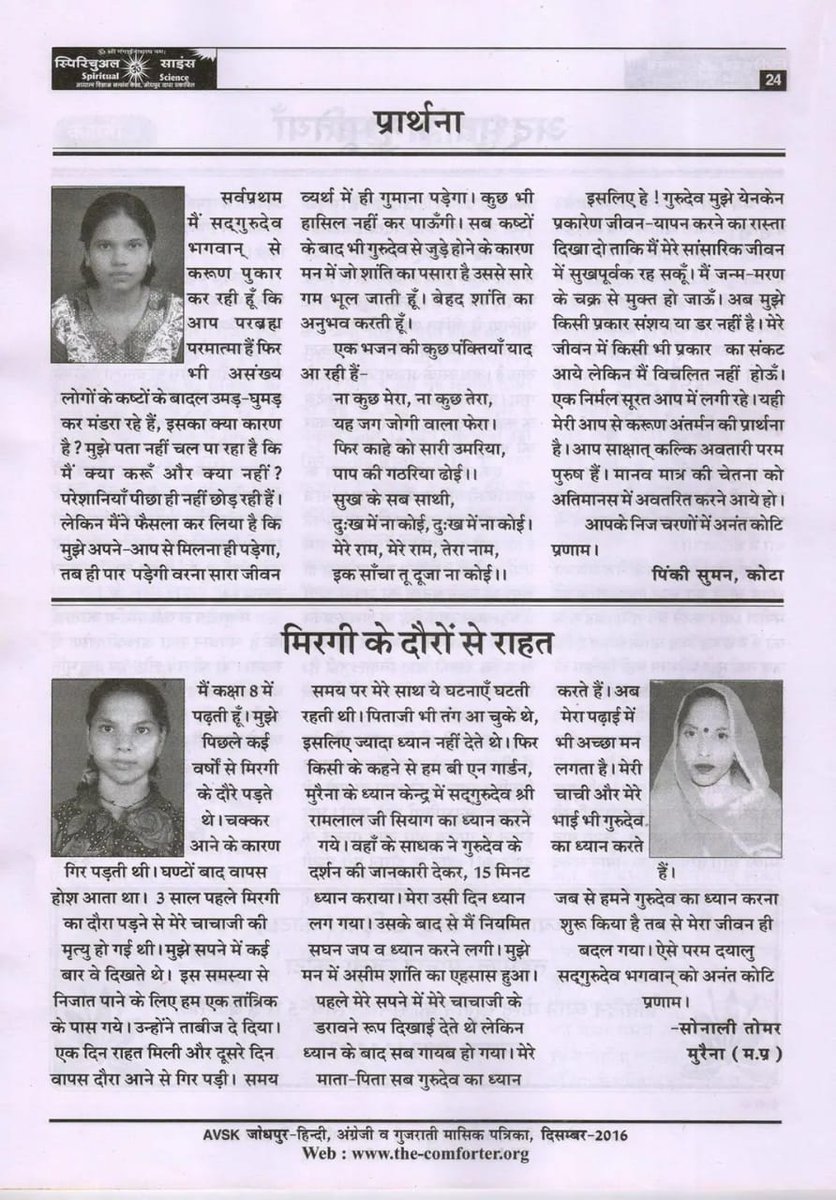 ॐ श्री गंगाईनाथाय नमः
स्पिरिचुअल साइंस
Spiritual Science
24
प्रार्थना
सर्वप्रथम
मैं सद्‌गुरुदेव
भगवान् से
करूण पुकार
कर रही हूँ कि
आप परब्रह्म
परमात्मा हैं फिर
भी असंख्य
लोगों के कष्टों के बादल उमड़-घुमड़
कर मंडरा रहे हैं, इसका क्या कारण
है? मुझे पता नहीं चल पा रहा है कि
मैं क्या करूँ और क्या नहीं?
परेशानियाँ पीछा ही नहीं छोड़ रही हैं।
लेकिन मैंने फैसला कर लिया है कि
मुझे अपने-आप से मिलना ही पड़ेगा,
तब ही पार पड़ेगी वरना सारा जीवन
व्यर्थ में ही गुमाना पड़ेगा। कुछ भी
हासिल नहीं कर पाऊँगी। सब कष्टों
के बाद भी गुरुदेव से जुड़े होने के कारण
मन में जो शांति का पसारा है उससे सारे
गम भूल जाती हूँ। बेहद शांति का
अनुभव करती हूँ।
एक भजन की कुछ पंक्तियाँ याद
आ रही हैं-
ना कुछ मेरा, ना कुछ तेरा,
यह जग जोगी वाला फेरा।
फिर काहे को सारी उमरिया,
पाप की गठरिया ढोई।।
सुख के सब साथी,
दुःख में ना कोई, दुःख में ना कोई।
मेरे राम, मेरे राम, तेरा नाम,
इक साँचा तू दूजा ना कोई।।
इसलिए हे! गुरुदेव मुझे येनकेन
प्रकारेण जीवन-यापन करने का रास्ता
दिखा दो ताकि मैं मेरे सांसारिक जीवन
में सुखपूर्वक रह सकूँ। मैं जन्म-मरण
के चक्र से मुक्त हो जाऊँ। अब मुझे
किसी प्रकार संशय या डर नहीं है। मेरे
जीवन में किसी भी प्रकार का संकट
आये लेकिन मैं विचलित नहीं होऊँ।
एक निर्मल सूरत आप में लगी रहे। यही
मेरी आप से करूण अंतर्मन की प्रार्थना
है। आप साक्षात् कल्कि अवतारी परम
पुरुष हैं। मानव मात्र की चेतना को
अतिमानस में अवतरित करने आये हो।
आपके निज चरणों में अनंत कोटि
प्रणाम।
पिंकी सुमन, कोटा
मिरगी के दौरों से राहत
मैं कक्षा 8 में
पढ़ती हूँ। मुझे
पिछले कई
वर्षों से मिरगी
के दौरे पड़ते
थे। चक्कर
आने के कारण
गिर पड़ती थी। घण्टों बाद वापस
होश आता था। 3 साल पहले मिरगी
का दौरा पड़ने से मेरे चाचाजी की
मृत्यु हो गई थी। मुझे सपने में कई
बार वे दिखते थे। इस समस्या से
निजात पाने के लिए हम एक तांत्रिक
के पास गये। उन्होंने ताबीज दे दिया।
एक दिन राहत मिली और दूसरे दिन
वापस दौरा आने से गिर पड़ी। समय
समय पर मेरे साथ ये घटनाएँ घटती
रहती थी। पिताजी भी तंग आ चुके थे,
इसलिए ज्यादा ध्यान नहीं देते थे। फिर
किसी के कहने से हम बी एन गार्डन,
मुरैना के ध्यान केन्द्र में सद्‌गुरुदेव श्री
रामलाल जी सियाग का ध्यान करने
गये। वहाँ के साधक ने गुरुदेव के
दर्शन की जानकारी देकर, 15 मिनट
ध्यान कराया। मेरा उसी दिन ध्यान
लग गया। उसके बाद से मैं नियमित
सघन जप व ध्यान करने लगी। मुझे
मन में असीम शांति का एहसास हुआ।
पहले मेरे सपने में मेरे चाचाजी के
डरावने रूप दिखाई देते थे लेकिन
ध्यान के बाद सब गायब हो गया। मेरे
माता-पिता सब गुरुदेव का ध्यान
करते हैं। अब
मेरा पढ़ाई में
भी अच्छा मन
लगता है। मेरी
चाची और मेरे
भाई भी गुरुदेव
का ध्यान करते
हैं।
जब से हमने गुरुदेव का ध्यान करना
शुरू किया है तब से मेरा जीवन ही
बदल गया। ऐसे परम दयालु
सद्‌गुरुदेव भगवान् को अनंत कोटि
प्रणाम।
-सोनाली तोमर
मुरैना ( म.प्र )
AVSK जोधपुर-हिन्दी, अंग्रेजी व गुजराती मासिक पत्रिका, दिसम्बर-2016
Web : www.the-comforter.org